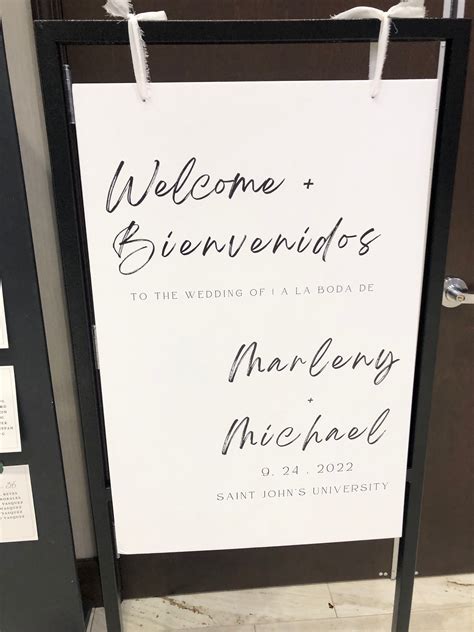 Welcome +
Bienvenidos
TO THE WEDDING OF | A LA BODA DE
Marleny
+
Michael
9. 24 . 2022
SAINT JOHN'S UNIVERSITY